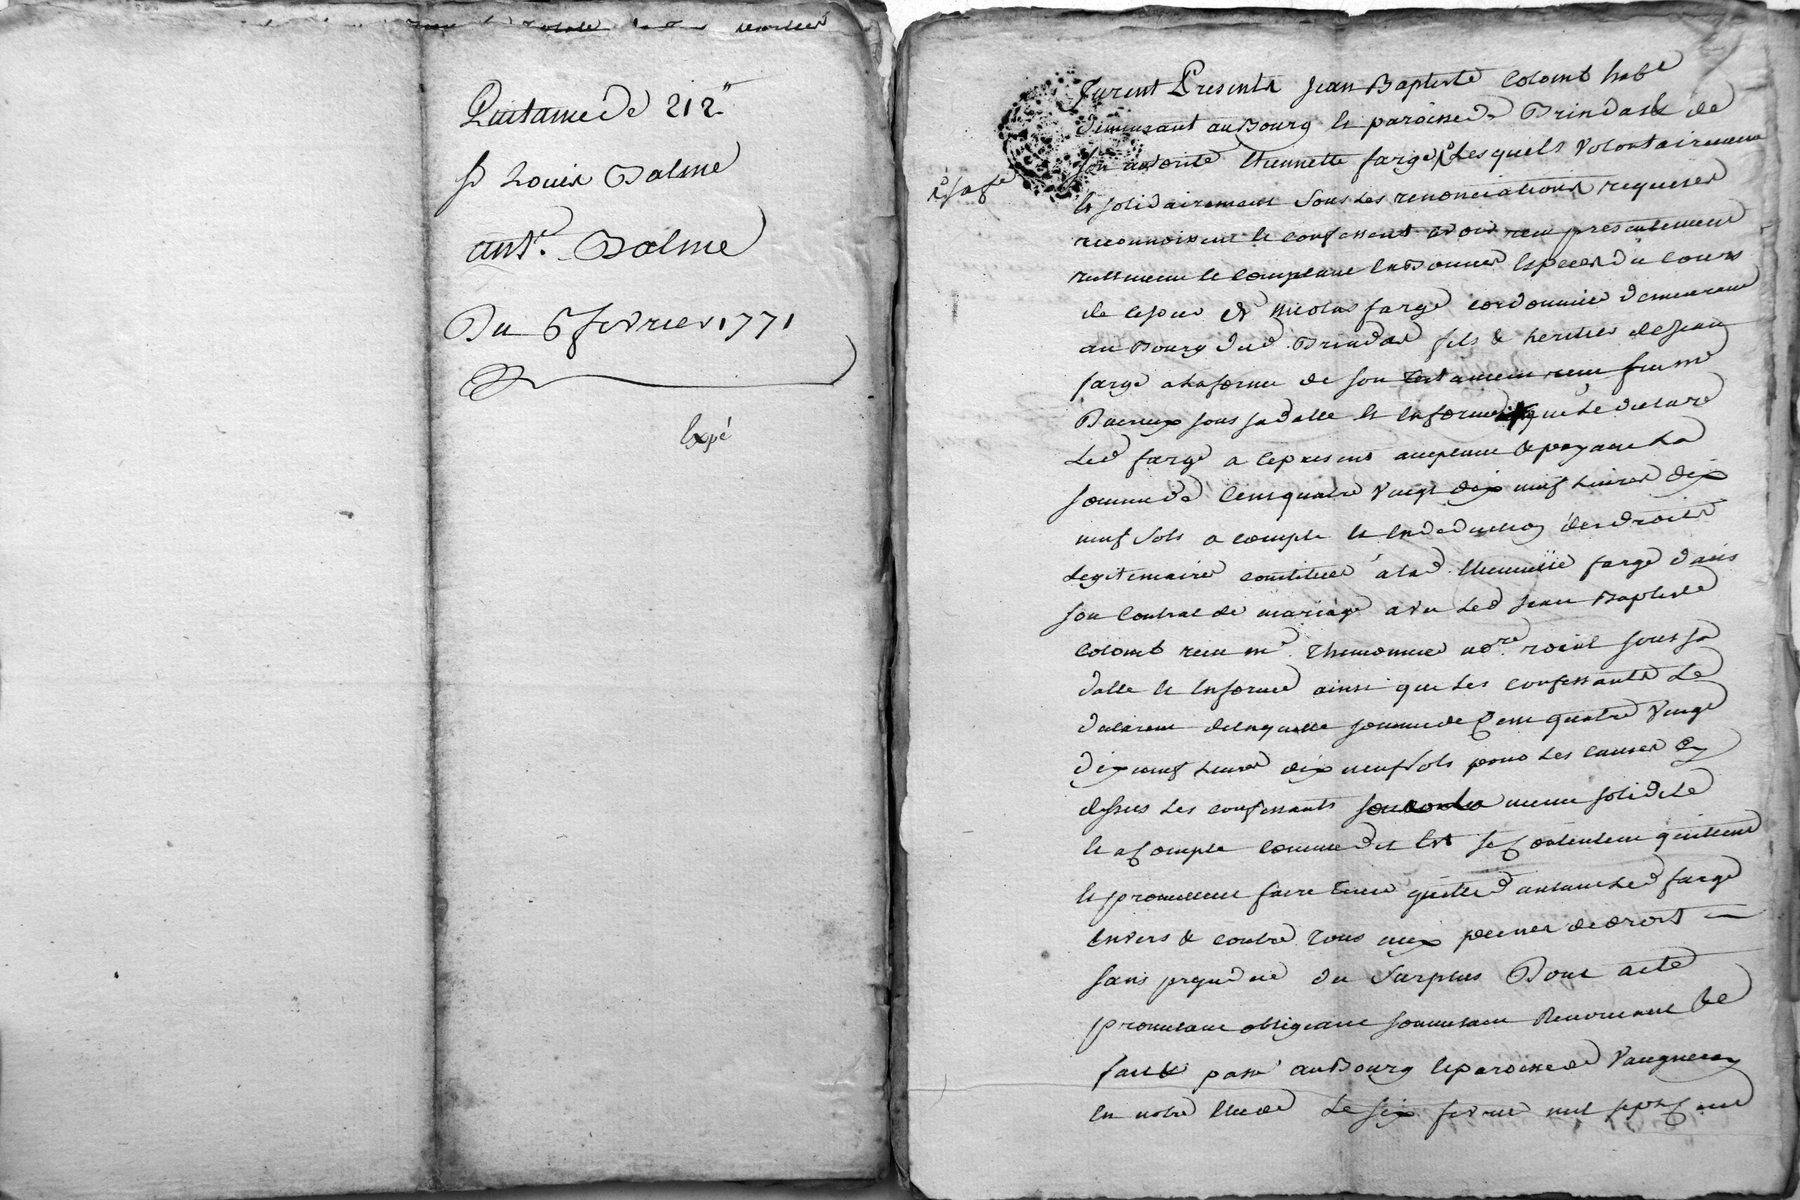 Quittance de 212ᵗᵗ
Sʳ Louis Dalme
antᵉ. Dalme
Du 6 fevrier 1771
Expé
Furent Presents Jean Baptiste Colomb habᵗ
demeurant au Bourg et paroisse de Brindas & de
son autorité Etiennette farge Lesquels Volontairement
sa feᵉ
et solidairement Sous Les renonciations requises
reconnoissent et confessent avoir reçu presentement
reellement et comptant en Bonnes Especes du Cours
de Nicolas farge cordonnier demeurant
au Bourg dud Brindas fils & heritier de Jean
farge a la forme de son testament reçu feu mᵉ
sous sa datte et en forme que Le declare
Led farge a ce present acceptant & payant La
somme de Cent quatre Vingt dix neuf Livres dix
neuf sols a compte et en deduction des droits
Legitimaires constitués à lad Etiennette farge dans
son Contrat de mariage avec Led Jean Baptiste
Colomb reçu mᵉ Thimonnier noʳᵉ roial sous sa
datte et en forme ainsi que Les confessants Le
declarent de laquelle somme de Cent quatre Vingt
dix neuf Livres dix neuf sols pour Les causes Cy
dessus Les confessants sous La meme solidité
et a Compte comme dit Est se Contentent quittent
et promettent faire tenir quitte d autant Led farge
Envers & contre tous aux peines de droit
Sans prejudice du Surplus Dont acte
promettant obligeant soumettant Renonceant &c
fait & passé au Bourg et paroisse de Vaugneray
En notre Etude Le six fevrier mil sept Cent